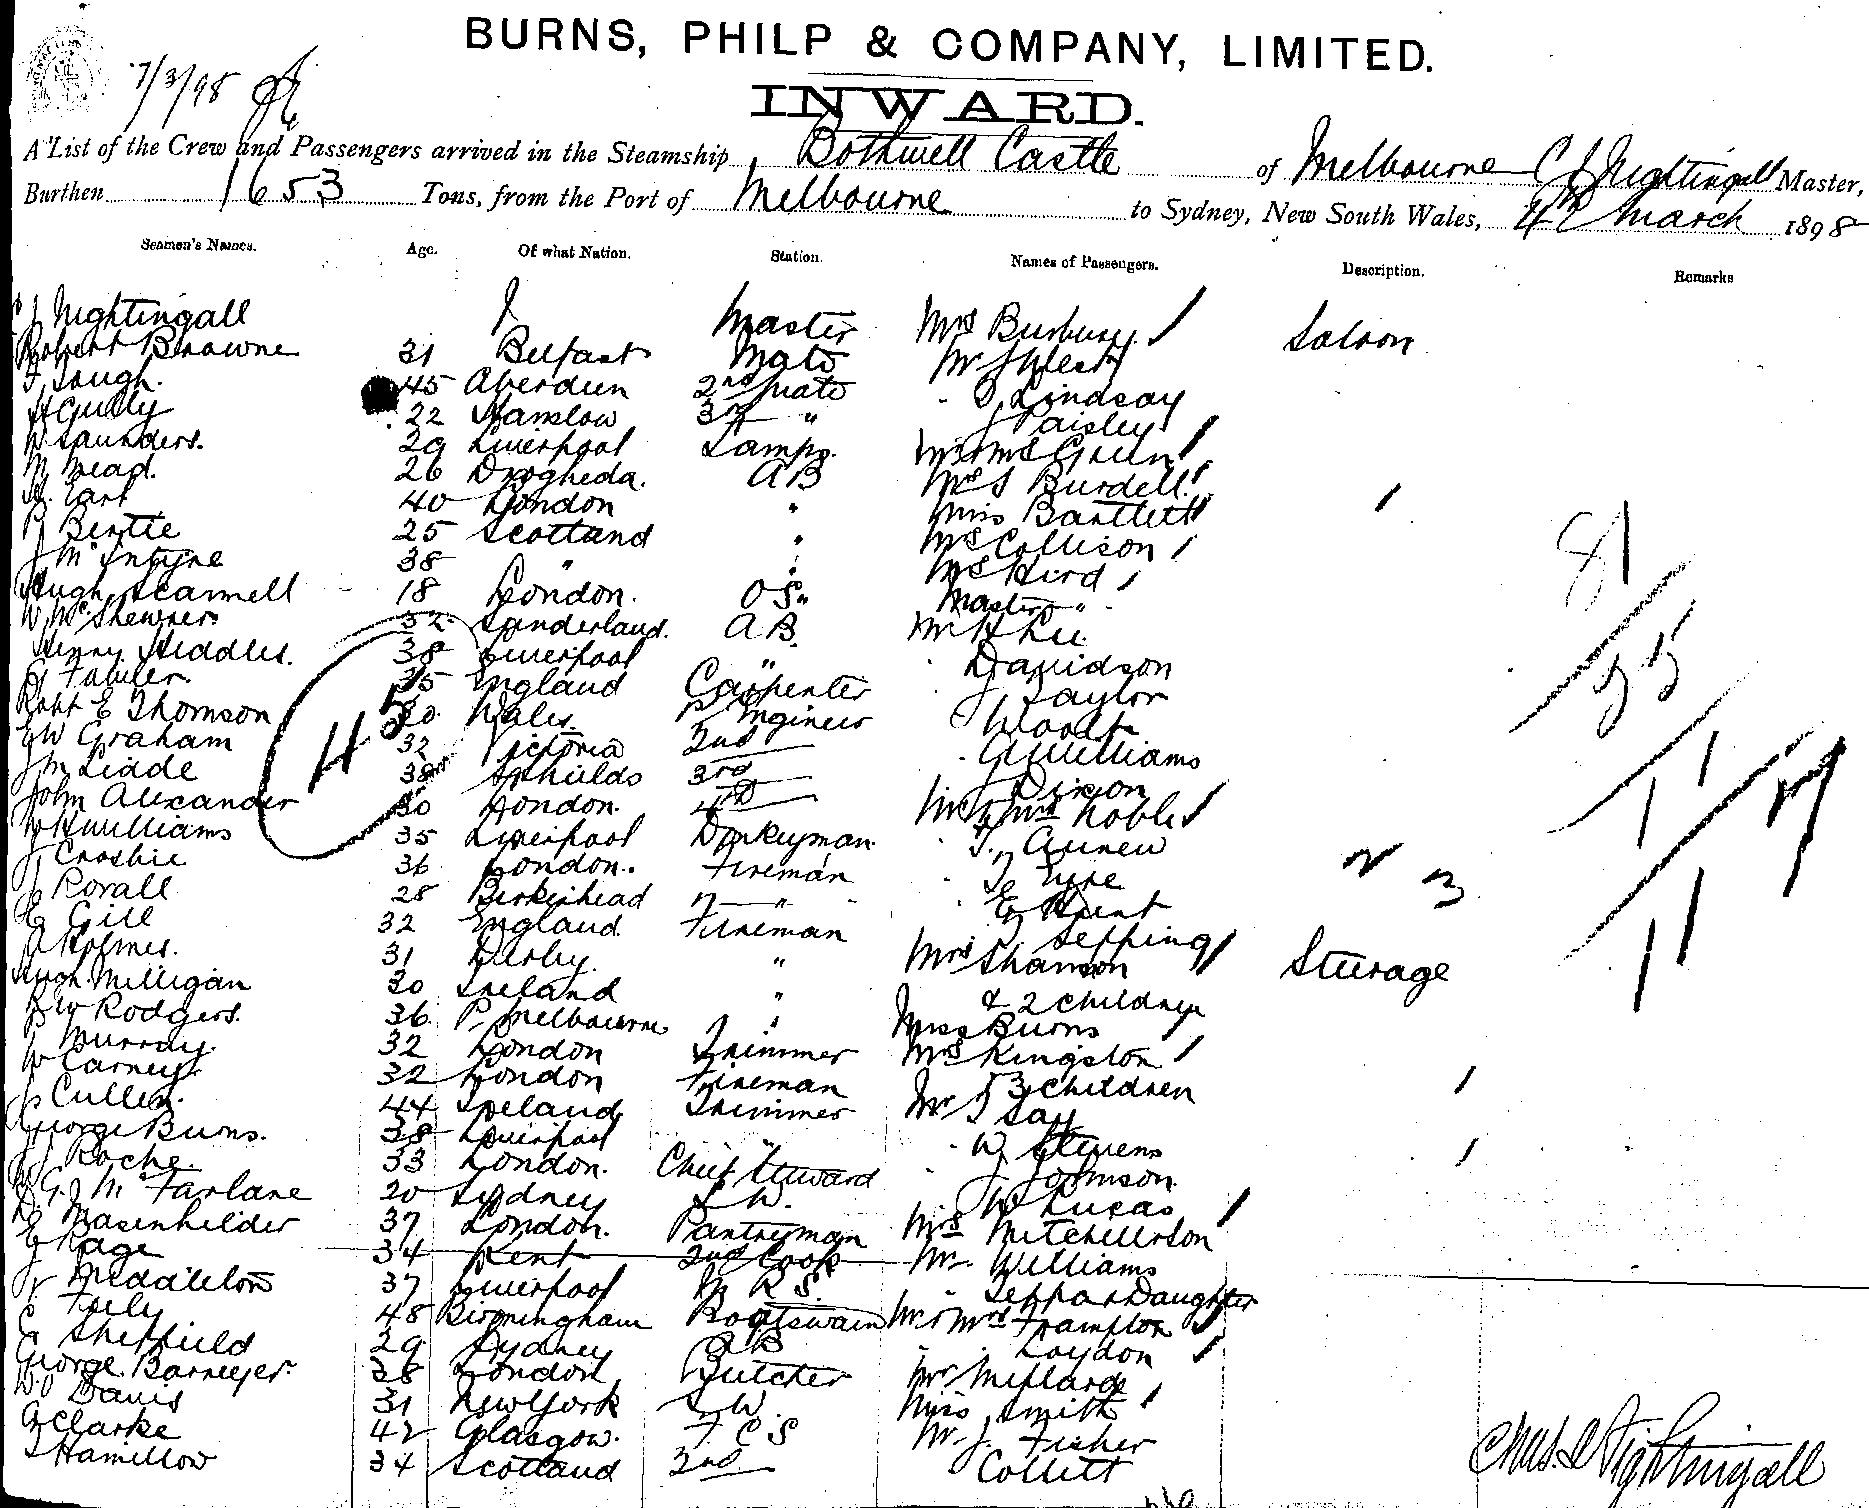 BURNS, PHILP & COMPANY, LIMITED.
7/3/98
INWARD.
A List of the Crew and Passengers arrived in the Steamship Bothwell Castle of Melbourne C J Nightingall Master,
Burthen 1653 Tons, from the Port of Melbourne to Sydney, New South Wales, 4th March 1898
Seamen's Names. Age. Of what Nation. Station. Names of Passengers. Description. Remarks
C J Nightingall Master Mrs Burbury Saloon
Robert Browne 31 Belfast Mate Mr J West
F Gough. 45 Aberdeen 2nd Mate " Lindsay
22 3rd " J Paisley
W Saunders. 29 Liverpool Lamps. Mr & Mrs Green
M Mead. 26 Drogheda. AB Mrs S Burdell
40 London " Miss Bartlett
R Beattie 25 Scotland " Mrs Collison
J McIntyre 38 " " Mrs Hird
Hugh Scannell 18 London. OS. Master "
W. 32 Sunderland. AB. Mr H Lee
Henry Hiddles. 38 Liverpool " Davidson
35 England Carpenter J Taylor
Robt E Thomson 30 Wales. 1st Engineer
J W Graham 32 Victoria 2nd " G Williams
J M Liddle 38 S Shields 3rd Dixon
John Alexander 30 London. 4th Mr & Mrs Noble
W H Williams 35 Liverpool Donkeyman T. Agnew
J Crosbie 36 London. Fireman T Eyre
J Rorall 28 Birkenhead " E Hunt
G Gill 32 England Fireman J Sepping
A Holmes. 31 Derby. " Mrs Shannon Steerage
Hugh Milligan 30 Ireland " & 2 children
R W Rodgers. 36 P. Melbourne " Miss Burns
P Murray. 32 London Trimmer Mrs Kingston
W Carney 32 London Fireman & 3 children
J Cullen. 44 Ireland Trimmer Mr J Say
George Burns. 38 Liverpool " " W Stevens
J J Roche. 33 London. Chief Steward " J Johnson
McFarlane 20 Sydney S W. W Lucas
37 London. Pantryman Mrs Mitchellson
E Page 34 Kent 2nd Cook Mr Williams
Middleton 37 Liverpool M R S. " Seppar & Daughter
48 Birmingham Boatswain Mr & Mrs Frampton
E Sheffield 29 Sydney AB " " Loydon
George Barmeyer. 38 London Butcher Mr Millard
W J Davis 31 New York S W Miss Smith
G Clarke 42 Glasgow. F C S Mr J. Fisher
J Hamilton 34 Scotland 2nd Collett
45
81
55
11
17
11
Chas. J Nightingall